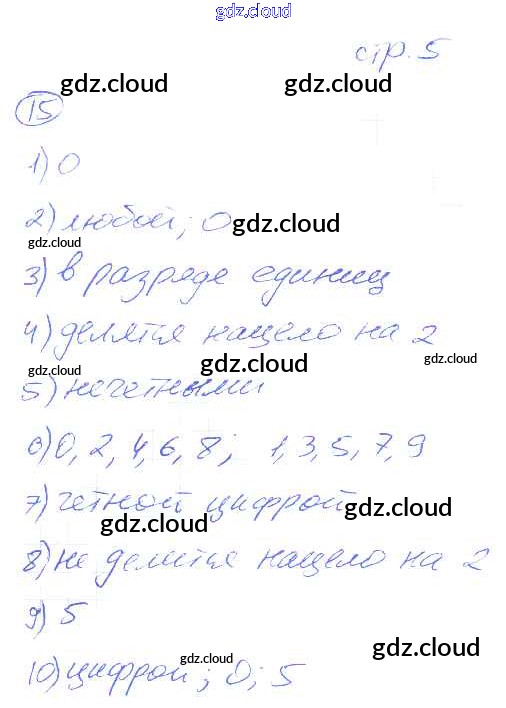 gdz.cloud
стр. 5
gdz.cloud gdz.cloud
15
1) 0
2) любой; 0 gdz.cloud
gdz.cloud
3) в разряде единиц
4) делятся нацело на 2
gdz.cloud gdz.cloud gdz.cloud
5) нечетными
6) 0, 2, 4, 6, 8; 1, 3, 5, 7, 9
7) четной цифрой
gdz.cloud gdz.cloud
8) не делится нацело на 2
9) 5
gdz.cloud gdz.cloud
10) цифрой; 0; 5